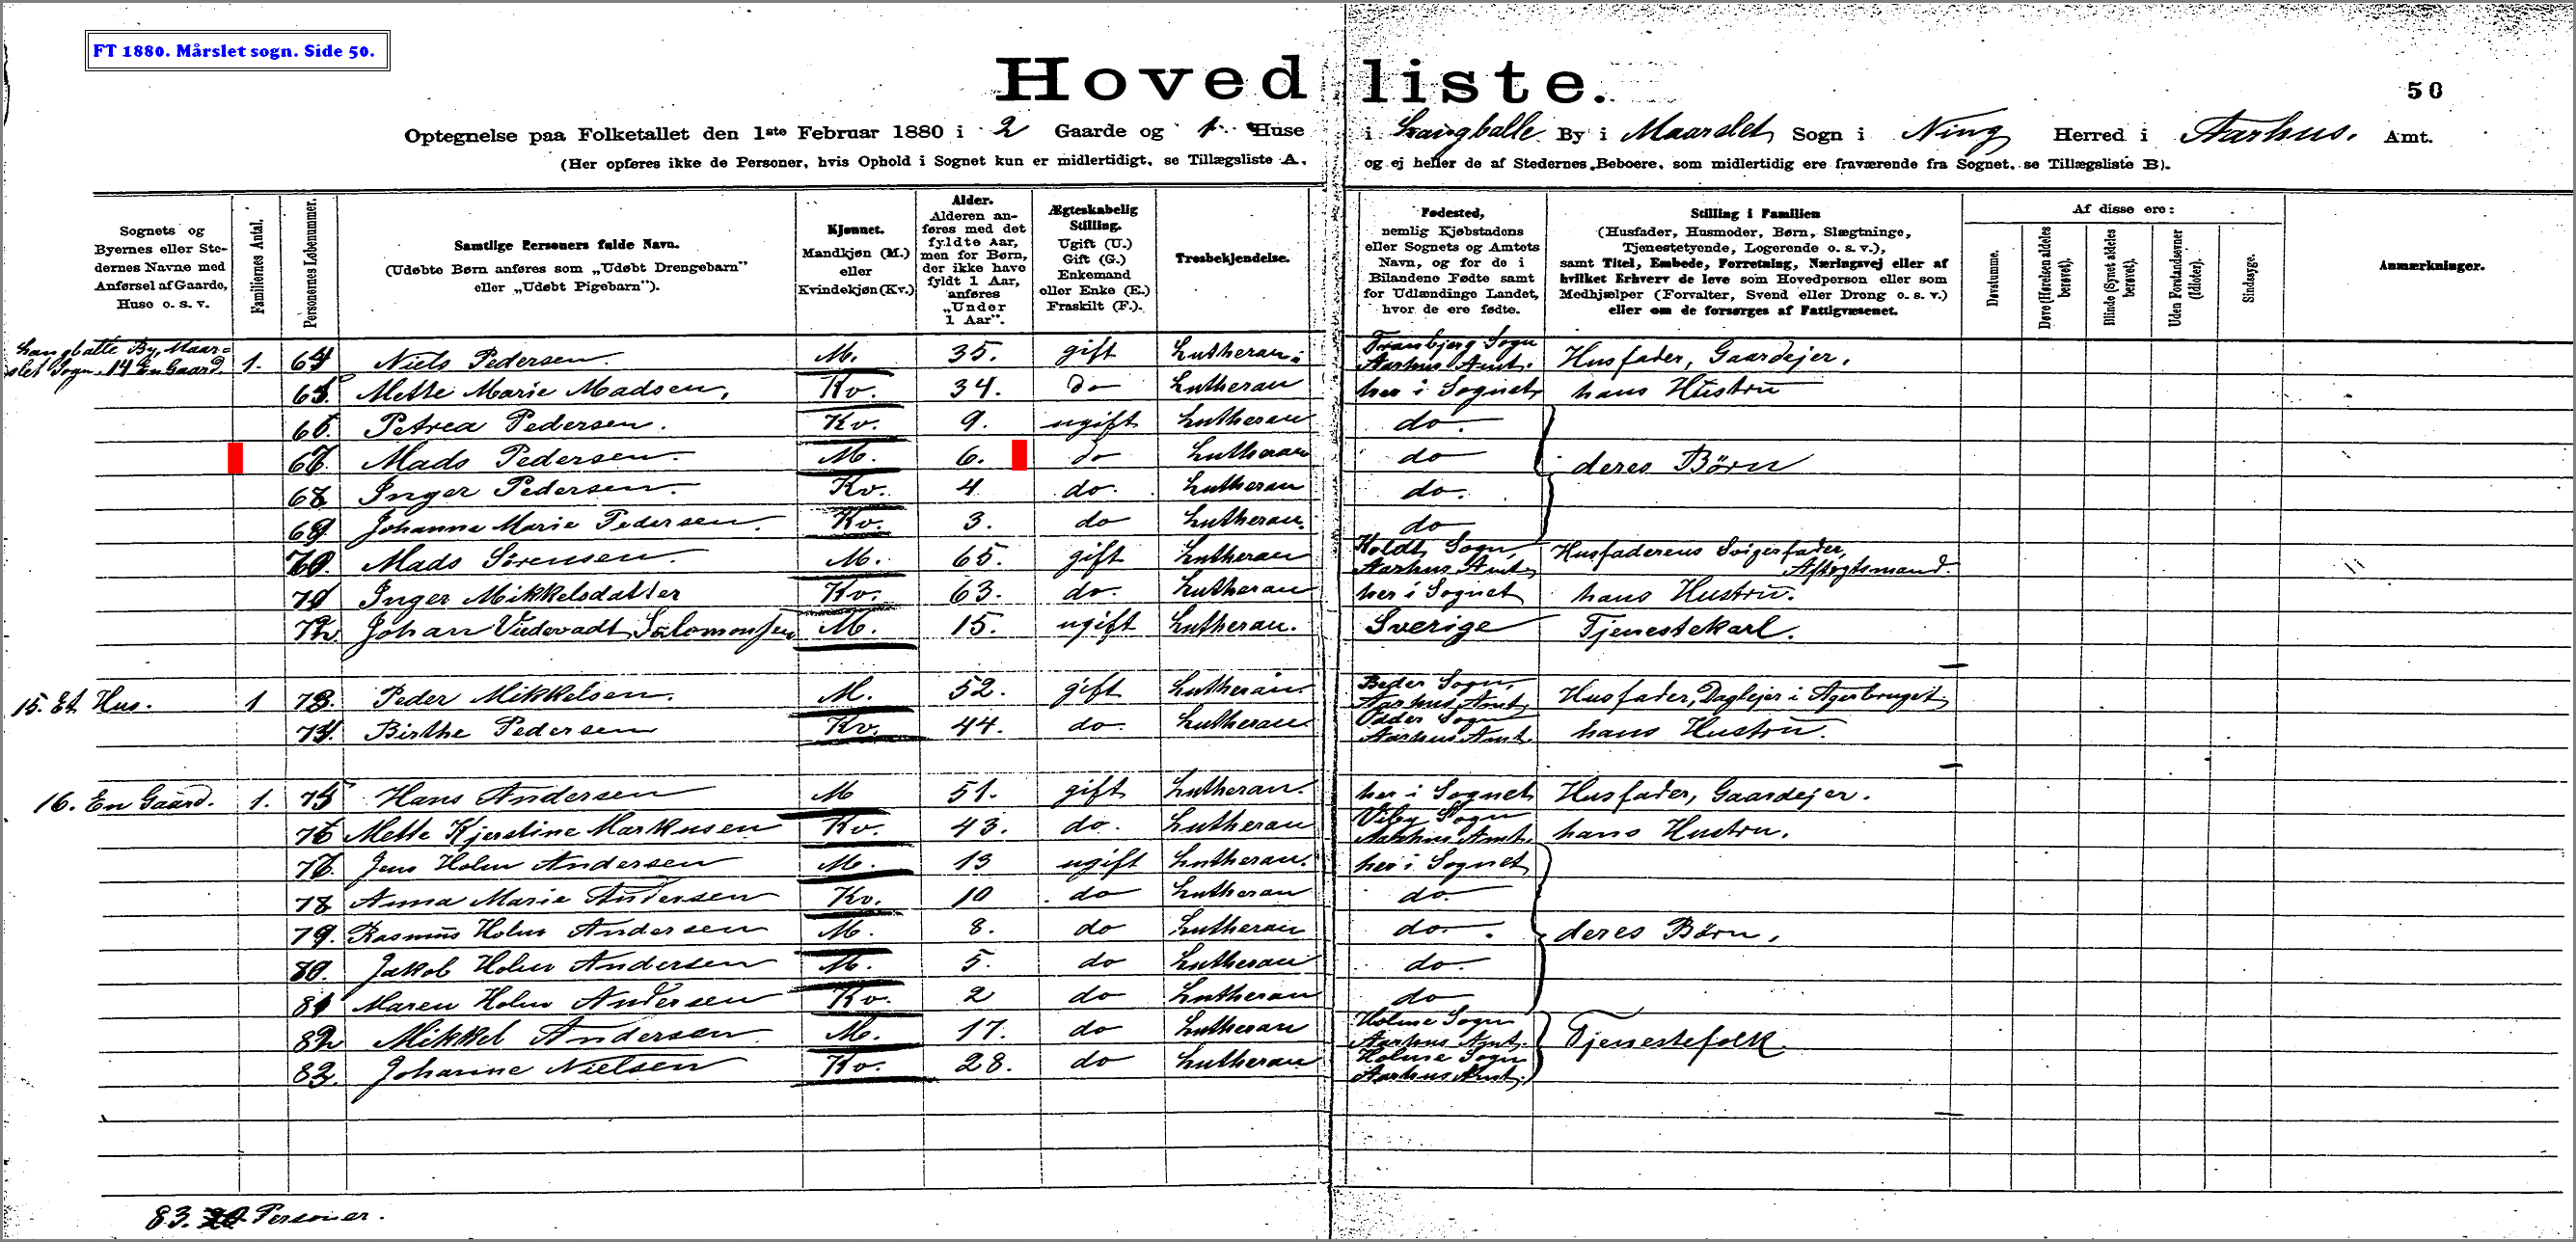 FT 1880. Mårslet sogn. Side 50.
Hovedliste.
50
Optegnelse paa Folketallet den 1ste Februar 1880 i 2 Gaarde og 1 Huse i Langballe By i Maarslet Sogn i Ning Herred i Aarhus Amt.
(Her opføres ikke de Personer, hvis Ophold i Sognet kun er midlertidigt, se Tillægsliste A, og ej heller de af Stedernes Beboere, som midlertidig ere fraværende fra Sognet, se Tillægsliste B).
Sognets og Byernes eller Stedernes Navne med Anførsel af Gaarde, Huse o. s. v.
Familiernes Antal.
Personernes Løbenummer.
Samtlige Personers fulde Navn.
(Udøbte Børn anføres som „Udøbt Drengebarn" eller „Udøbt Pigebarn").
Kjønnet.
Mandkjøn (M.) eller Kvindekjøn (Kv.)
Alder.
Alderen anføres med det fyldte Aar, men for Børn, der ikke have fyldt 1 Aar, anføres „Under 1 Aar".
Ægteskabelig Stilling.
Ugift (U.) Gift (G.) Enkemand eller Enke (E.) Fraskilt (F.).
Trosbekjendelse.
Fødested,
nemlig Kjøbstadens eller Sognets og Amtets Navn, og for de i Bilandene Fødte samt for Udlændinge Landet, hvor de ere fødte.
Stilling i Familien
(Husfader, Husmoder, Børn, Slægtninge, Tjenestetyende, Logerende o. s. v.),
samt Titel, Embede, Forretning, Næringsvej eller af hvilket Erhverv de leve som Hovedperson eller som Medhjælper (Forvalter, Svend eller Dreng o. s. v.) eller om de forsørges af Fattigvæsenet.
Af disse ere:
Døvstumme.
Døve (Hørelsen aldeles berøvet).
Blinde (Synet aldeles berøvet).
Uden Forstandsevner (Idioter).
Sindssyge.
Anmærkninger.
Langballe By, Maarslet Sogn. 14 En Gaard. 1. 64 Niels Pedersen M. 35. gift Lutheran. Tranbjerg Sogn Aarhus Amt. Husfader, Gaardejer.
65. Mette Marie Madsen, Kv. 34. do Lutheran her i Sognet hans Hustru
66. Petrea Pedersen. Kv. 9. ugift Lutheran do.
67. Mads Pedersen. M. 6. do Lutheran do deres Børn
68 Inger Pedersen. Kv. 4 do. Lutheran do.
69 Johanne Marie Pedersen. Kv. 3. do Lutheran. do
70. Mads Sørensen. M. 65. gift Lutheran Holdt Sogn, Aarhus Amt Husfaderens Svigerfader, Aftægtsmand.
71 Inger Mikkelsdatter Kv. 63. do. Lutheran her i Sognet hans Hustru.
72. Johan Salomonsen M. 15. ugift Lutheran. Sverige Tjenestekarl.
15. Et Hus. 1 73. Peder Mikkelsen. M. 52. gift Lutheran. Beder Sogn, Aarhus Amt, Husfader, Daglejer i Agerbruget.
74. Birthe Pedersen Kv. 44. do. Lutheran Odder Sogn Aarhus Amt. hans Hustru.
16. En Gaard. 1. 75 Hans Andersen M 51. gift Lutheran. her i Sognet Husfader, Gaardejer.
76 Mette Kjerstine Markusen Kv. 43. do. Lutheran Viby Sogn Aarhus Amt. hans Hustru.
77. Jens Holm Andersen M. 13 ugift Lutheran. her i Sognet
78 Anna Marie Andersen Kv. 10 do Lutheran do.
79. Rasmus Holm Andersen M. 8. do Lutheran do. deres Børn,
80. Jakob Holm Andersen M. 5. do Lutheran do.
81 Maren Holm Andersen Kv. 2 do Lutheran do
82 Mikkel Andersen. M. 17. do Lutheran Holme Sogn Aarhus Amt. Tjenestefolk.
83. Johanne Nielsen Kv. 28. do Lutheran Holme Sogn Aarhus Amt.
83. Personer.